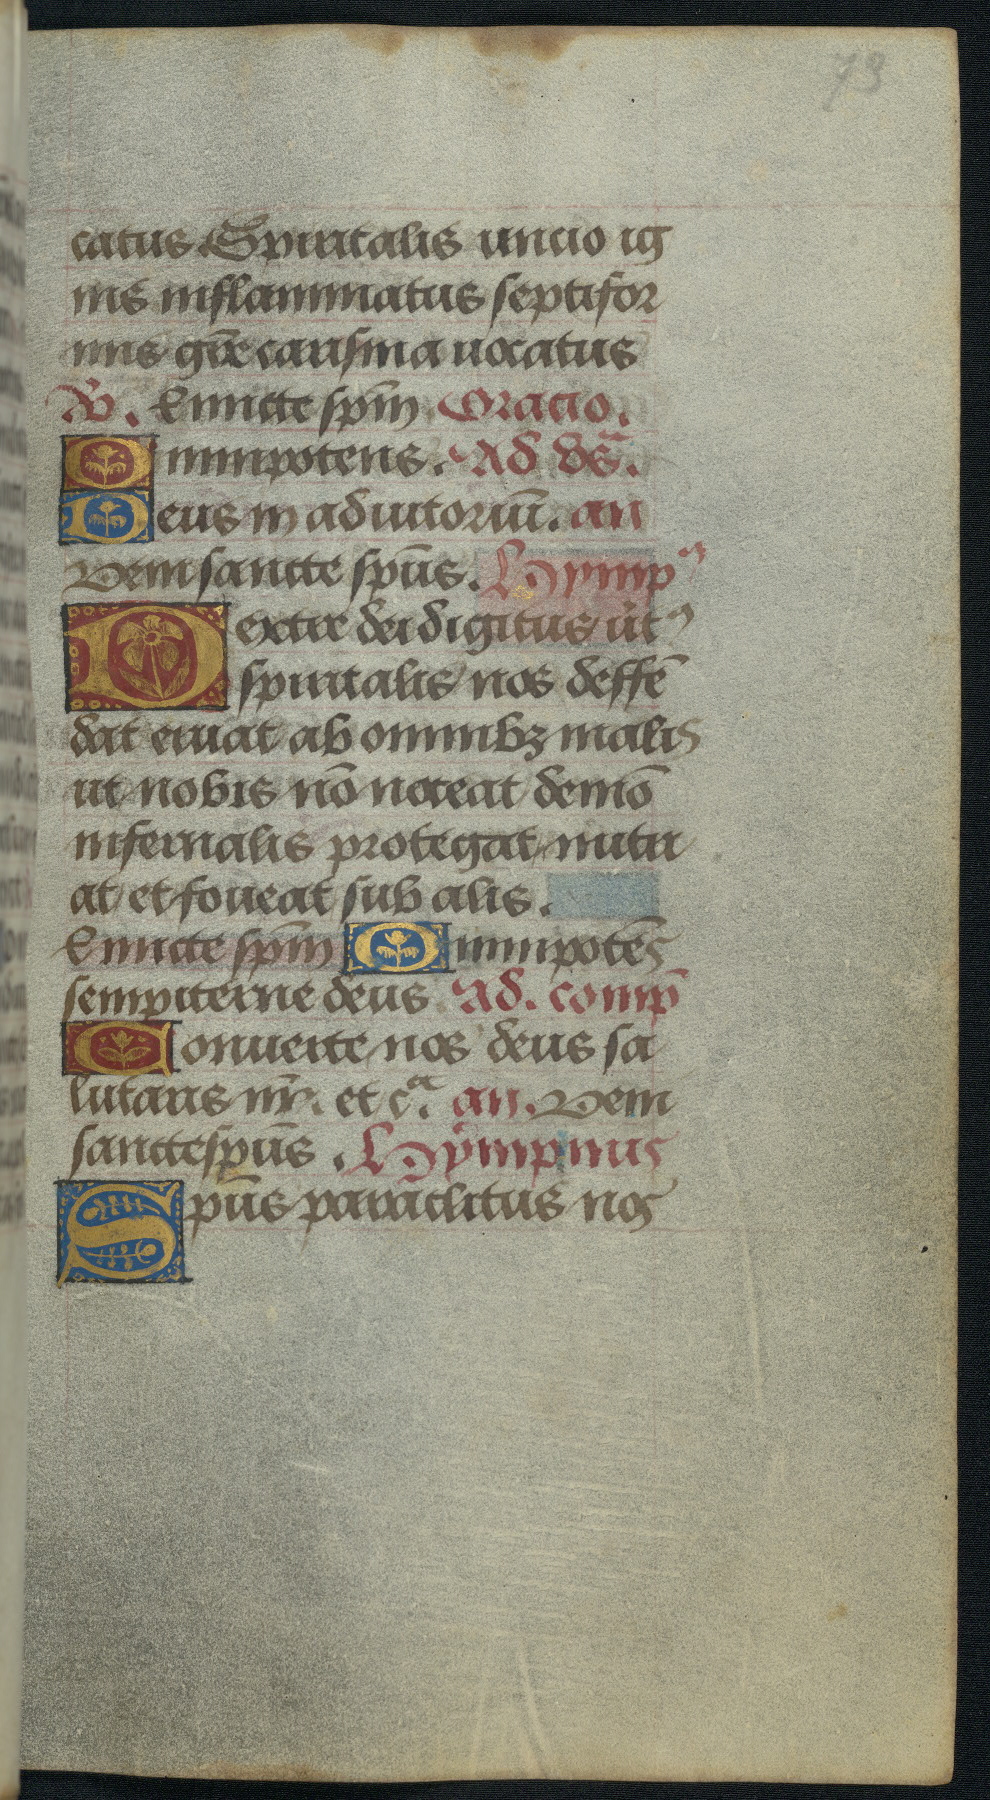 73
catus Spiritalis unctio ig
nis inflammatus septifor
mis grē carisma uocatus
℣. Emitte sp̄m Oracio.
Omnipotens. Ad vs̄.
Deus in adiutoriū. an
Veni sancte sp̄us. Hymp⁹
Dextre dei digitus uirt⁹
spiritalis nos deffē
dat eruat ab omnibꝫ malis
ut nobis nō noceat demō
infernalis protegat nutri
at et foueat sub alis.
Emitte sp̄m Omnipotēs
sempiterne deus Ad. comp̄
Conuerte nos deus sa
lutaris nr̄. et cᵃ. an. Veni
sancte sp̄us. Hympnus
Sp̄us paraclitus nos